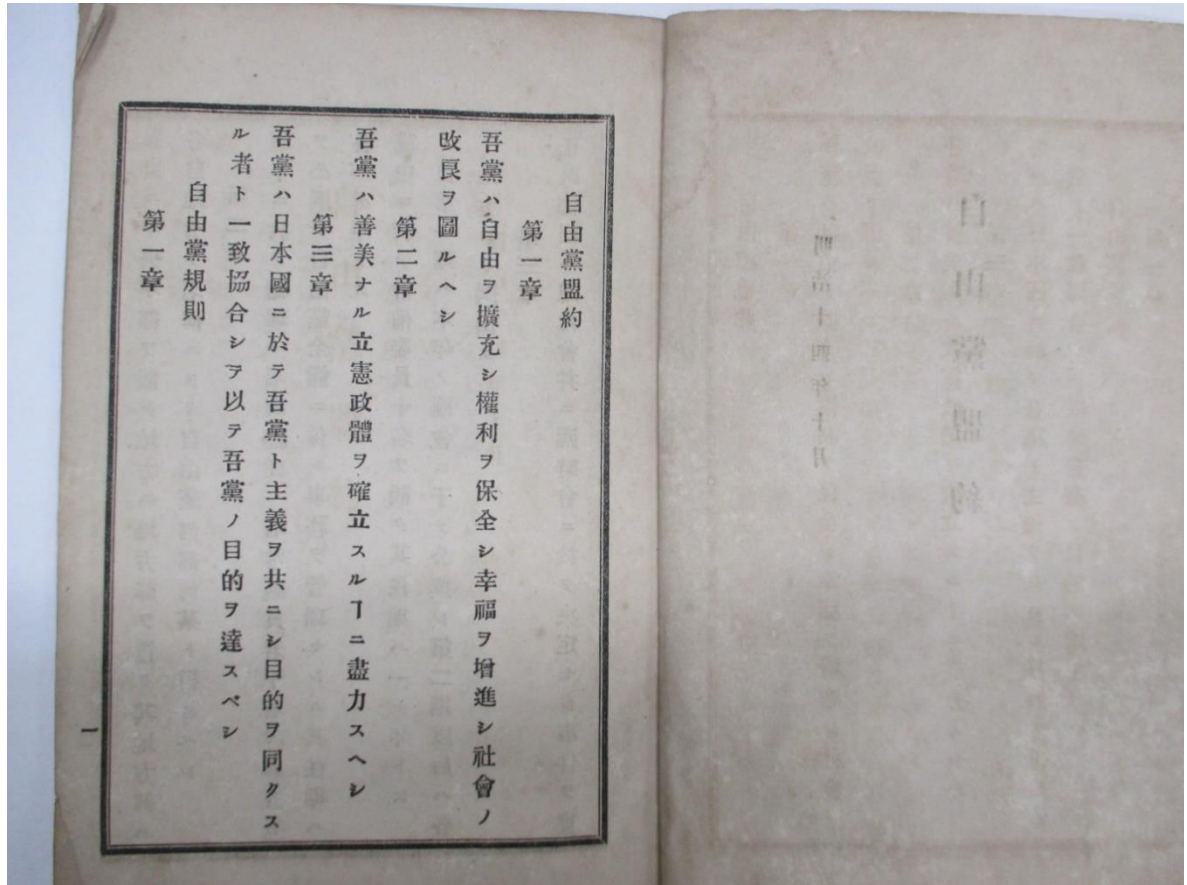 自由黨盟約
第一章
吾黨ハ自由ヲ擴充シ權利ヲ保全シ幸福ヲ增進シ社會ノ
改良ヲ圖ルヘシ
第二章
吾黨ハ善美ナル立憲政體ヲ確立スルヿニ盡力スヘシ
第三章
吾黨ハ日本國ニ於テ吾黨ト主義ヲ共ニシ目的ヲ同クス
ル者ト一致協合シヲ以テ吾黨ノ目的ヲ達スベシ
自由黨規則
第一章
一